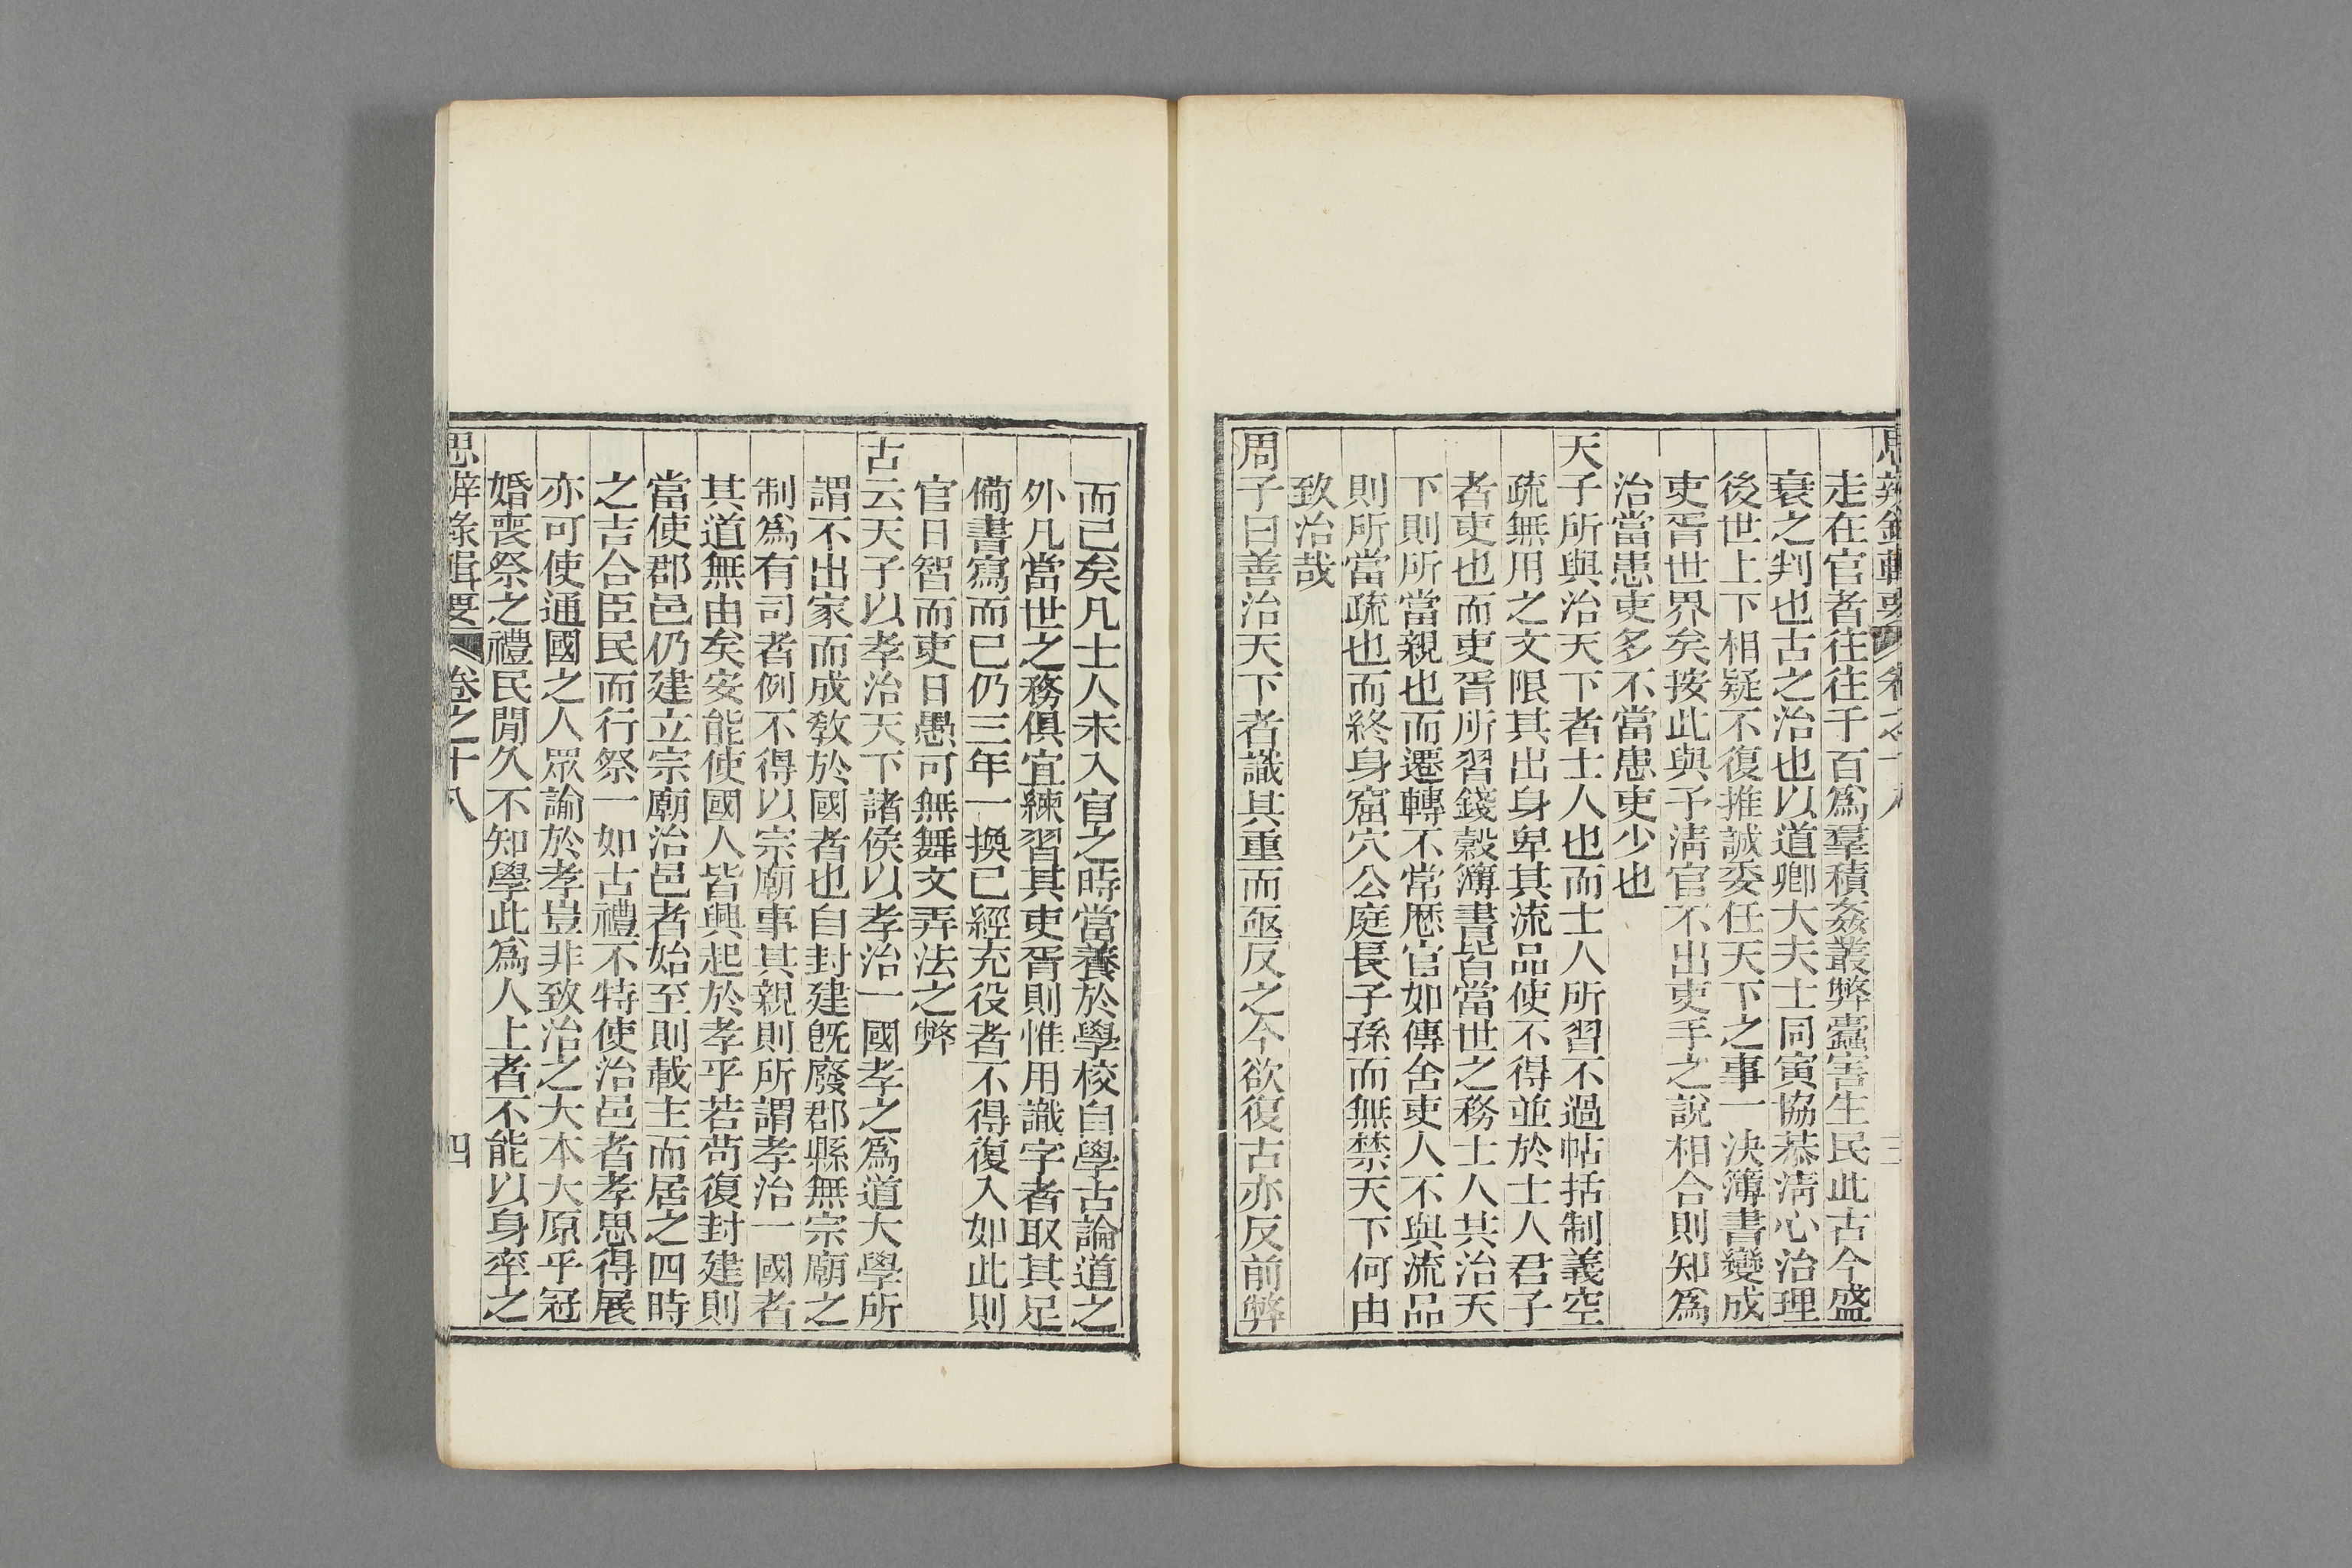 思辨錄輯要 卷之十八 三
走在官者往往千百爲羣積姦叢弊蠹害生民此古今盛
衰之判也古之治也以道卿大夫士同寅協恭淸心治理
後世上下相疑不復推誠委任天下之事一決簿書變成
吏胥世界矣按此與予淸官不出吏手之說相合則知爲
治當患吏多不當患吏少也
天子所與治天下者士人也而士人所習不過帖括制義空
疏無用之文限其出身卑其流品使不得並於士人君子
者吏也而吏胥所習錢穀簿書皆當世之務士人共治天
下則所當親也而遷轉不常厯官如傳舍吏人不與流品
則所當疏也而終身窟穴公庭長子孫而無禁天下何由
致治哉
周子曰善治天下者識其重而亟反之今欲復古亦反前弊
而已矣凡士人未入官之時當養於學校自學古論道之
外凡當世之務俱宜練習其吏胥則惟用識字者取其足
備書寫而已仍三年一換已經充役者不得復入如此則
官日智而吏日愚可無舞文弄法之弊
古云天子以孝治天下諸侯以孝治一國孝之爲道大學所
謂不出家而成敎於國者也自封建旣廢郡縣無宗廟之
制爲有司者例不得以宗廟事其親則所謂孝治一國者
其道無由矣安能使國人皆興起於孝乎若茍復封建則
當使郡邑仍建立宗廟治邑者始至則載主而居之四時
之吉合臣民而行祭一如古禮不特使治邑者孝思得展
亦可使通國之人眾諭於孝豈非致治之大本大原乎冠
婚喪祭之禮民閒久不知學此爲人上者不能以身率之
思辨錄輯要 卷之十八 四